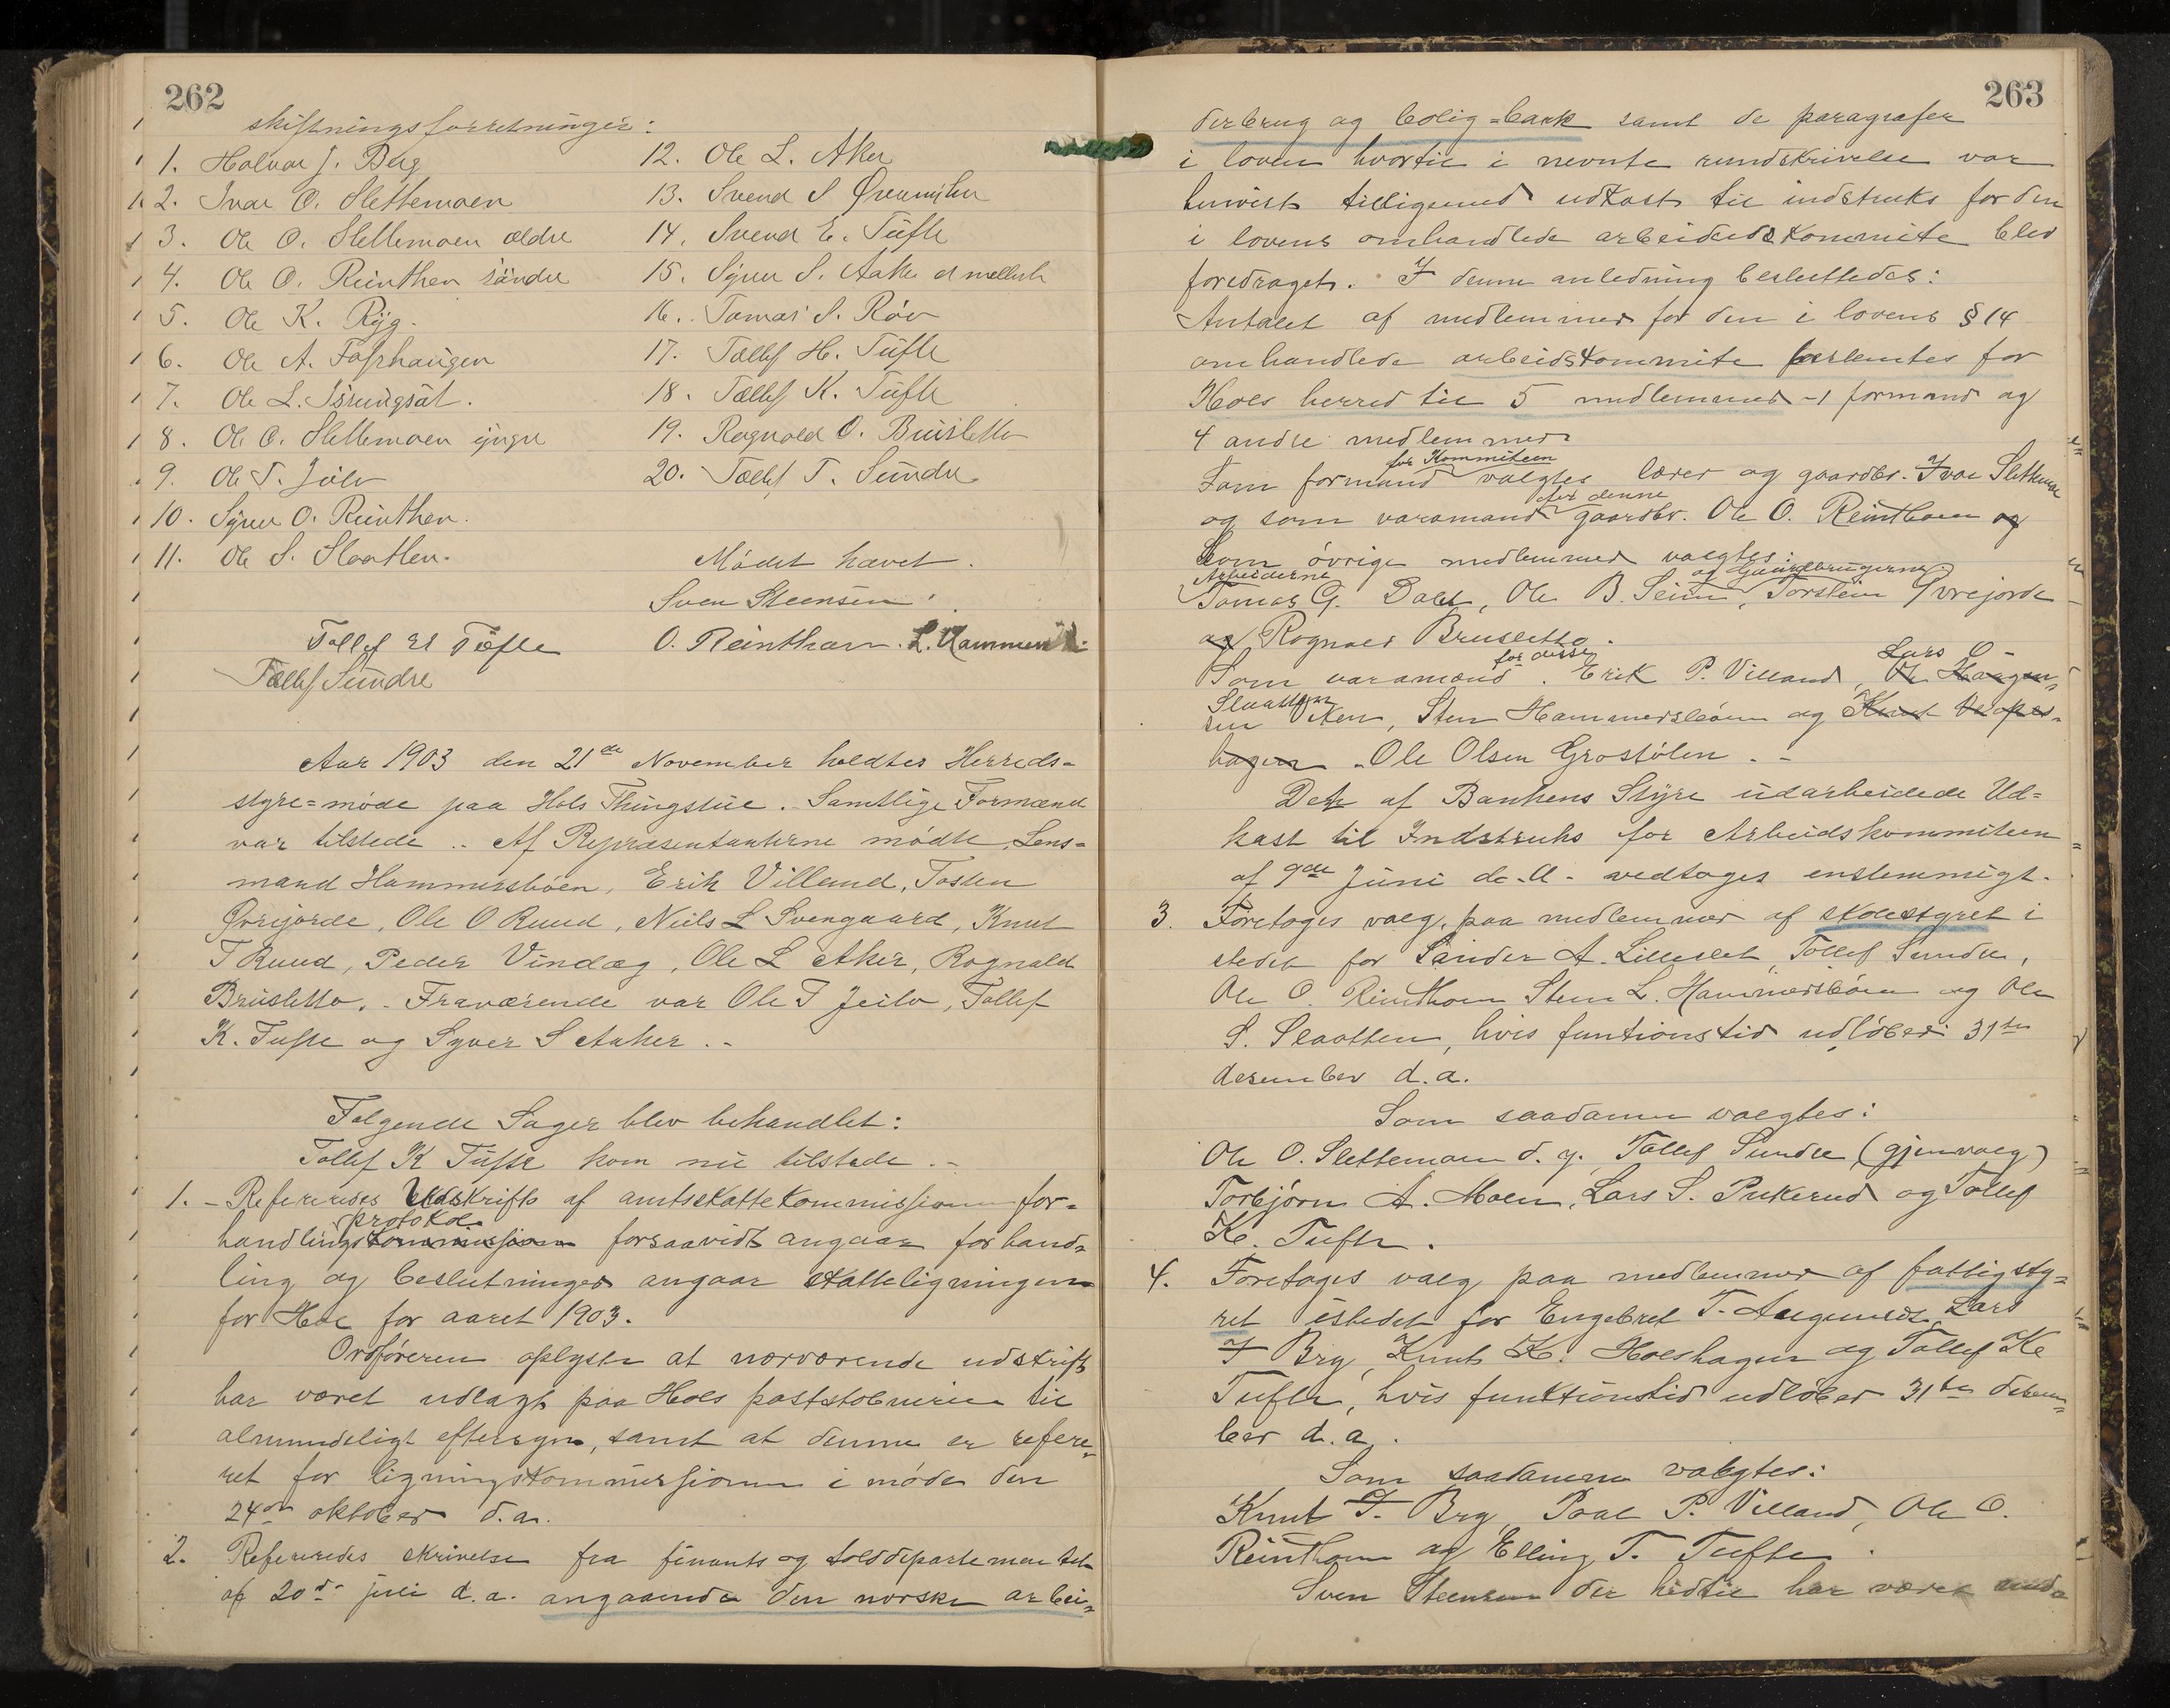 262
skiftningsforretninger:
1. Halvar J. Berg
2. Ivar O. Slettemoen
3. Ole O. Slettemoen ældre
4. Ole O. Reinthon søndre
5. Ole K. Ryg.
6. Ole A.
7. Ole L.
8. Ole O. Slettemoen yngre
9. Ole T. Jeilo
10. Syver O. Reinthon.
11. Ole S. Slaatten.
12. Ole L. Aker
13. Svend S.
14. Svend E. Tufte
15. Syver S. Aaker
16. Tomas S. Röv
17. Tollef H. Tufte
18. Tollef K. Tufte
19. Rognald O. Brusletto
20. Tollef T. Sundre
Mödet hævet.
Sven Steensen.
Tollef Tofte O. Reinthon. L. Hammersb
Tollef Sundre
Aar 1903 den 21de November holdtes Herreds-
styre=möde paa Hols Thingstue. Samtlige Formænd
var tilstede .. Af Repræsentanterne mödte Lens=
mand Hammersböen, Erik Villand, Tosten
Qvrejorde, Ole O Ruud, Niels L Svengaard, Knut
T Ruud, Peder Vindæg, Ole L Aker, Rognald
Brusletto. - Fraværende var Ole T Jeilo, Tollef
K. Tufte og Syver S Aaker. -
Følgende Sager blev behandlet:
Tollef K Tufte kom nu tilstede. -
1. - Refereredes Udskrift af amtsskattekommissionens for=
protokol
handlingskommission forsaavidt angaar forhand=
ling og beslutninger angaar skatteligningen
for Hol for aaret 1903.
Ordföreren oplyste at nærværende udskrift
har været udlagt paa Hols poststolneri til
almindeligt eftersyn, samt at denne er refere=
ret for ligningskommissionen i möde den
24de oktober d.a.
2. Refereredes skrivelse fra finants og tolddepartementet
af 20de juli d.a. angaaende den norske arbei=
263
derbrug og bolig=bank samt de paragrafer
i loven hvortil i nevnte rundskrivelse var
henvist tilligemed udkast til indstruks for den
i lovens omhandlede arbeidedskommite blev
foredraget. I denne anledning besluttedes:
Antalet af medlemmer for den i lovens § 14
omhandlede arbeidskommite for
Hols herred til 5 medlemmer - 1 formand og
4 andre medlemmer
for Kommiteen
Som formand valgtes lærer og gaardbr. Ivar Slettemoen
for denne
og som varamand gaardbr. Ole O. Reinthon og
Som övrige medlemmer valgtes:
Arbeiderne og Gaardbrugerne
Tomas G. Dalen, Ole B. Seim, Torstein Qvrejorde
og Rognald Brusletto.
for disse Lars O
Som varamænd . Erik P. Villand, Ole Haagen=
Slaatten
sen Viken, Sten Hammersböen og Knut
hagen . Ole Olsen Grostölen . -
Det af Bankens Styre udarbeidede Ud=
kast til Indstruks for Arbeidskommiteen
af 9de Juni d.A. vedtoges enstemmigt.
3. Foretoges valg paa medlemmer af skolestyret i
stedet for Sander A. Lilleslet, Tollef Sundre,
Ole O. Reinthon Sten L. Hammersböen og Ole
S. Slaatten, hvis funtionstid udlöber 31te
desember d.a.
Som saadanne valgtes:
Ole O. Slettemoen d. y. Tollef Sundre (gjenvalg)
Torbjörn A. Moen, Lars S. Pukerud og Tollef
K. Tufte.
4. Foretoges valg paa medlemmer af fattigsty=
ret istedet for Engebret T. Lars
T Bry Knut K. Holshagen og Tollef K
Tufte, hvis funktionstid udlöber 31te desem=
ber d.a.
Som saadanne valgtes:
Knut T. Bry, Paal P. Villand, Ole O.
Reinthon og Elling T. Tufte.
Sven Steensen der hidtil har været